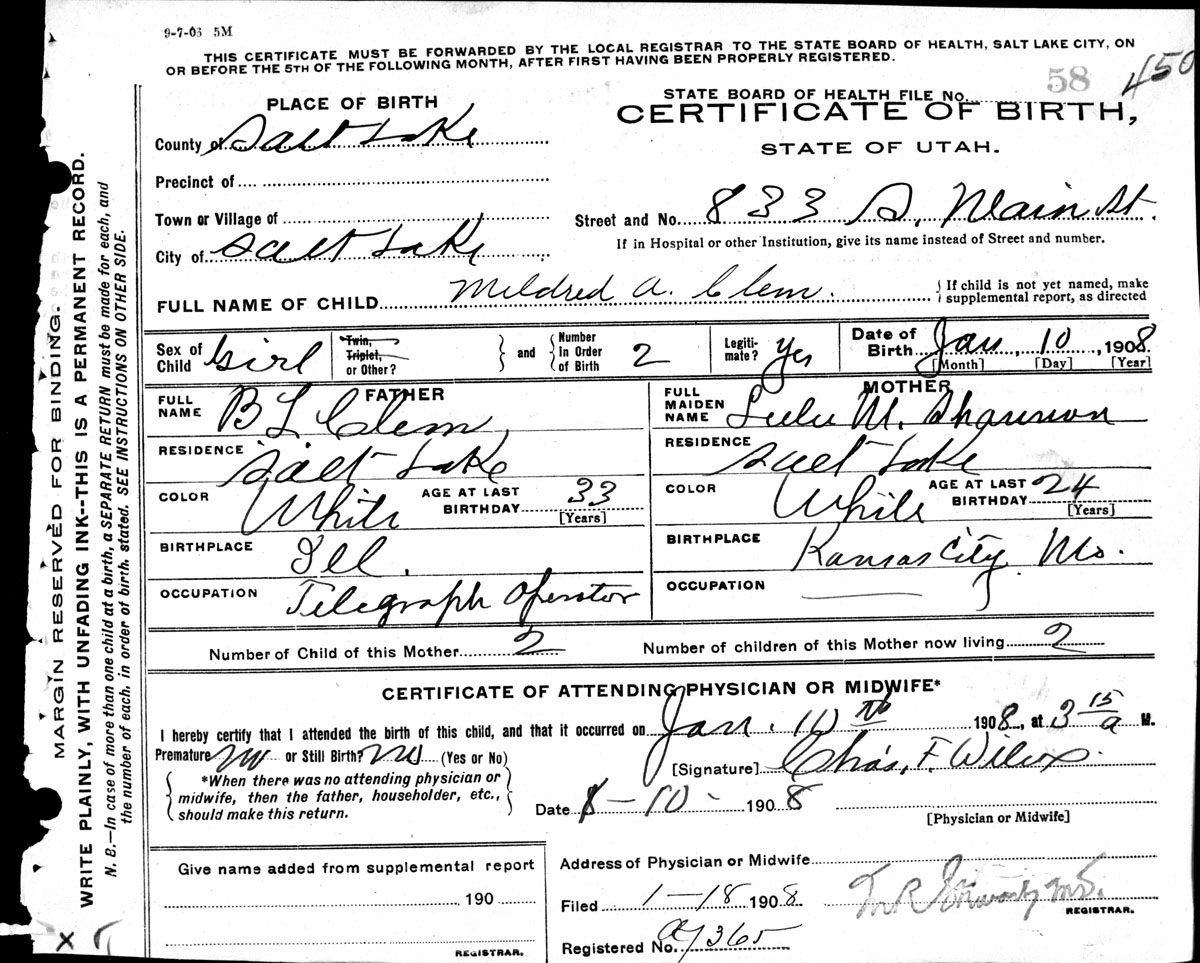 9-7-03 5M
THIS CERTIFICATE MUST BE FORWARDED BY THE LOCAL REGISTRAR TO THE STATE BOARD OF HEALTH, SALT LAKE CITY, ON
OR BEFORE THE 5TH OF THE FOLLOWING MONTH, AFTER FIRST HAVING BEEN PROPERLY REGISTERED.
STATE BOARD OF HEALTH FILE No. 58 450
CERTIFICATE OF BIRTH,
STATE OF UTAH.
PLACE OF BIRTH
County of Salt Lake
Precinct of
Town or Village of
City of Salt Lake
Street and No. 833 S. Main St.
If in Hospital or other Institution, give its name instead of Street and number.
FULL NAME OF CHILD Mildred A. Clem. { If child is not yet named, make
supplemental report, as directed
Sex of Child Girl
Twin, Triplet, or Other? } and { Number In Order of Birth 2
Legitimate? Yes
Date of Birth Jan, 10, 1908
[Month] [Day] [Year]
FATHER
FULL NAME B L Clem,
RESIDENCE Salt Lake
COLOR White AGE AT LAST BIRTHDAY 33
[Years]
BIRTHPLACE Ill.
OCCUPATION Telegraph Operator
MOTHER
FULL MAIDEN NAME Lulu M. Shannon
RESIDENCE Salt Lake
COLOR White AGE AT LAST BIRTHDAY 24
[Years]
BIRTHPLACE Kansas City Mo.
OCCUPATION
Number of Child of this Mother 2 Number of children of this Mother now living 2
CERTIFICATE OF ATTENDING PHYSICIAN OR MIDWIFE*
I hereby certify that I attended the birth of this child, and that it occurred on Jan. 10th 1908, at 3 15/a M.
Premature no or Still Birth? no (Yes or No)
*When there was no attending physician or
midwife, then the father, householder, etc.,
should make this return.
[Signature] Chas. F. Wilcox.
Date 1-10- 1908
[Physician or Midwife]
Give name added from supplemental report
190
REGISTRAR.
Address of Physician or Midwife
Filed 1-18 1908
M.D.
REGISTRAR.
Registered No. 365
MARGIN RESERVED FOR BINDING.
WRITE PLAINLY, WITH UNFADING INK--THIS IS A PERMANENT RECORD.
N. B.—In case of more than one child at a birth, a SEPARATE RETURN must be made for each, and
the number of each, in order of birth, stated. SEE INSTRUCTIONS ON OTHER SIDE.
X